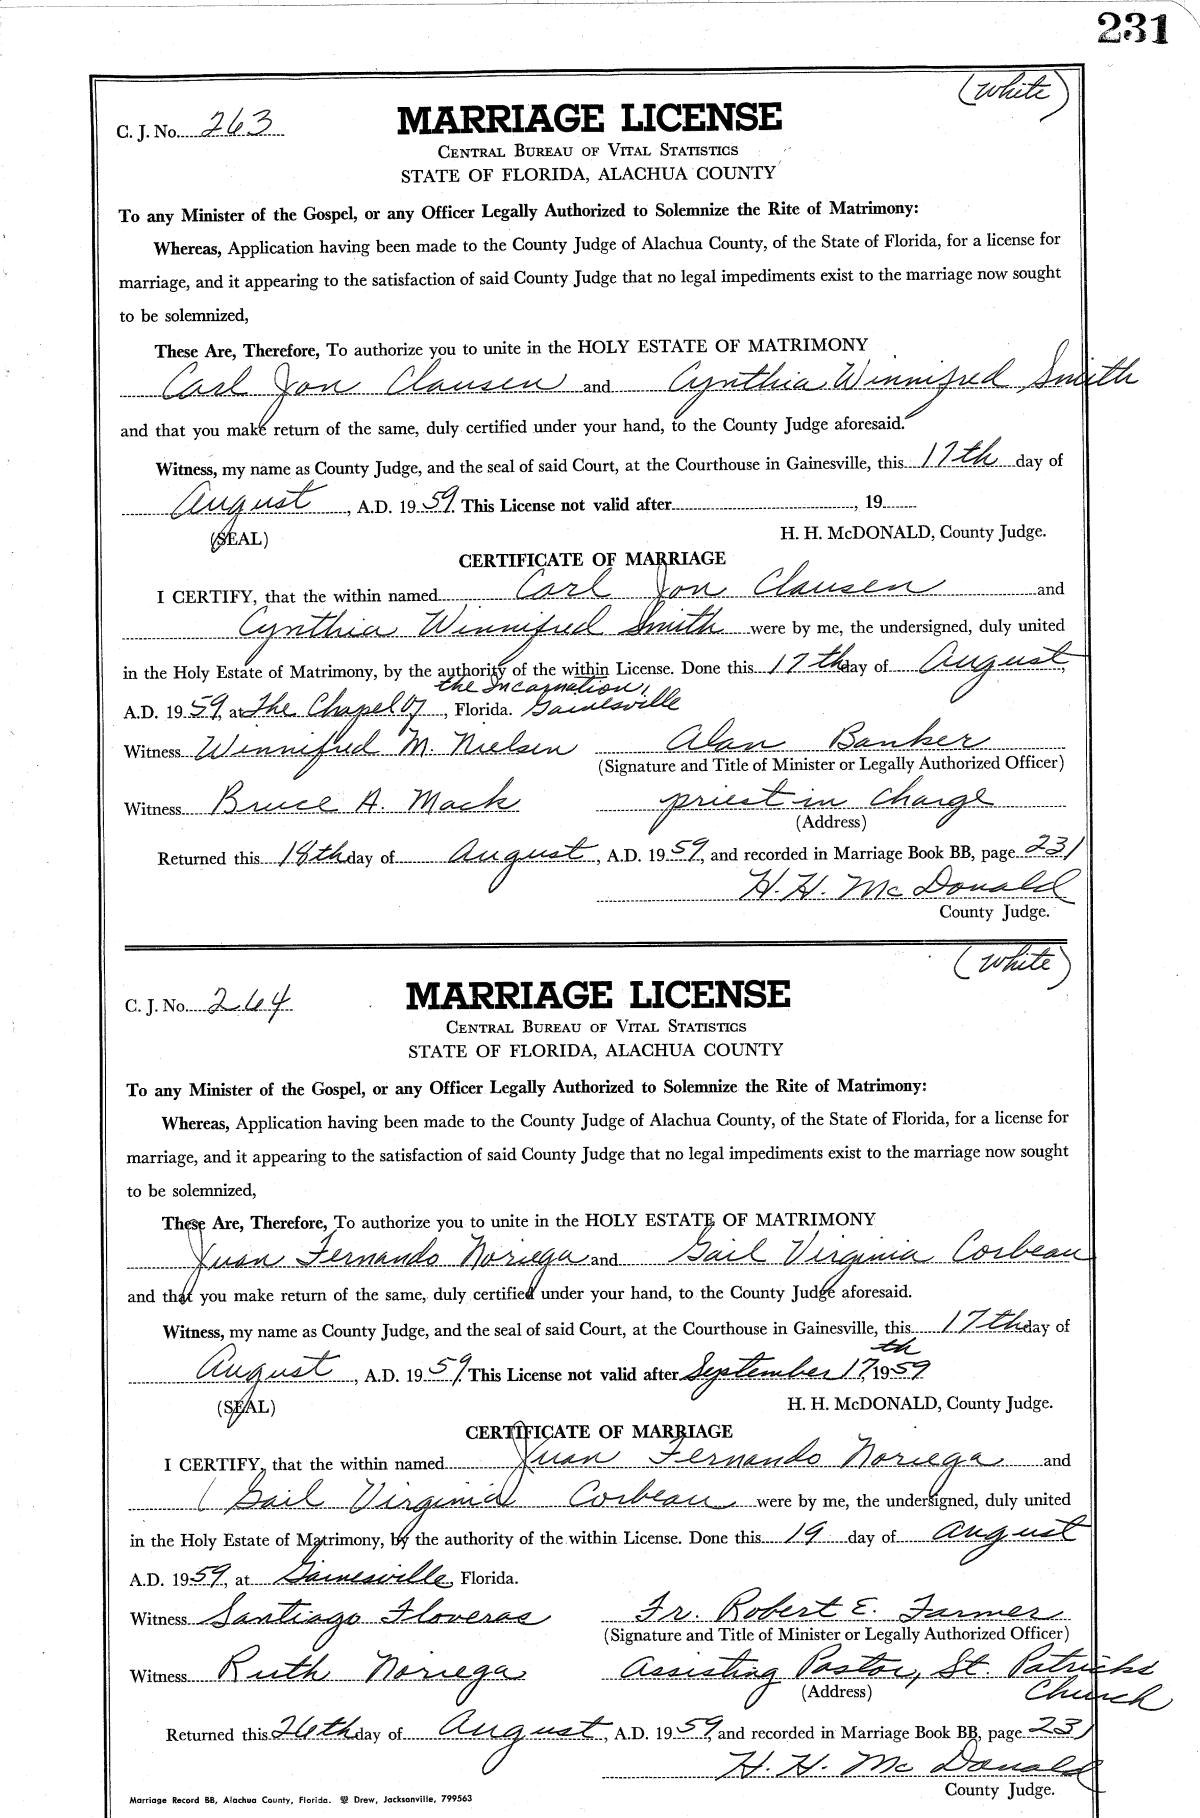 231
(White)
C. J. No. 263
MARRIAGE LICENSE
CENTRAL BUREAU OF VITAL STATISTICS
STATE OF FLORIDA, ALACHUA COUNTY
To any Minister of the Gospel, or any Officer Legally Authorized to Solemnize the Rite of Matrimony:
Whereas, Application having been made to the County Judge of Alachua County, of the State of Florida, for a license for
marriage, and it appearing to the satisfaction of said County Judge that no legal impediments exist to the marriage now sought
to be solemnized,
These Are, Therefore, To authorize you to unite in the HOLY ESTATE OF MATRIMONY
Carl Jon Clausen and Cynthia Winnifred Smith
and that you make return of the same, duly certified under your hand, to the County Judge aforesaid.
Witness, my name as County Judge, and the seal of said Court, at the Courthouse in Gainesville, this 17th day of
August, A.D. 1959. This License not valid after , 19
(SEAL) H. H. McDONALD, County Judge.
CERTIFICATE OF MARRIAGE
I CERTIFY, that the within named Carl Jon Clausen and
Cynthia Winnifred Smith were by me, the undersigned, duly united
in the Holy Estate of Matrimony, by the authority of the within License. Done this 17th day of August,
the Incarnation,
A.D. 1959, at The Chapel of , Florida. Gainesville
Witness Winnifred M. Nielsen Alan Banker
(Signature and Title of Minister or Legally Authorized Officer)
Witness Bruce A. Mack priest in charge
(Address)
Returned this 18th day of August, A.D. 1959, and recorded in Marriage Book BB, page 231
H. H. McDonald
County Judge.
(White)
C. J. No. 264
MARRIAGE LICENSE
CENTRAL BUREAU OF VITAL STATISTICS
STATE OF FLORIDA, ALACHUA COUNTY
To any Minister of the Gospel, or any Officer Legally Authorized to Solemnize the Rite of Matrimony:
Whereas, Application having been made to the County Judge of Alachua County, of the State of Florida, for a license for
marriage, and it appearing to the satisfaction of said County Judge that no legal impediments exist to the marriage now sought
to be solemnized,
These Are, Therefore, To authorize you to unite in the HOLY ESTATE OF MATRIMONY
Juan Fernando Noriega and Gail Virginia Corbeau
and that you make return of the same, duly certified under your hand, to the County Judge aforesaid.
Witness, my name as County Judge, and the seal of said Court, at the Courthouse in Gainesville, this 17th day of
August, A.D. 1959. This License not valid after September 17th, 1959
(SEAL) H. H. McDONALD, County Judge.
CERTIFICATE OF MARRIAGE
I CERTIFY, that the within named Juan Fernando Noriega and
Gail Virginia Corbeau were by me, the undersigned, duly united
in the Holy Estate of Matrimony, by the authority of the within License. Done this 19 day of August
A.D. 1959, at Gainesville, Florida.
Witness Santiago Floveras Fr. Robert E. Farmer
(Signature and Title of Minister or Legally Authorized Officer)
Witness Ruth Noriega Assisting Pastor, St. Patricks
(Address) Church
Returned this 26th day of August, A.D. 1959, and recorded in Marriage Book BB, page 231
H. H. McDonald
County Judge.
Marriage Record BB, Alachua County, Florida. Drew, Jacksonville, 799563